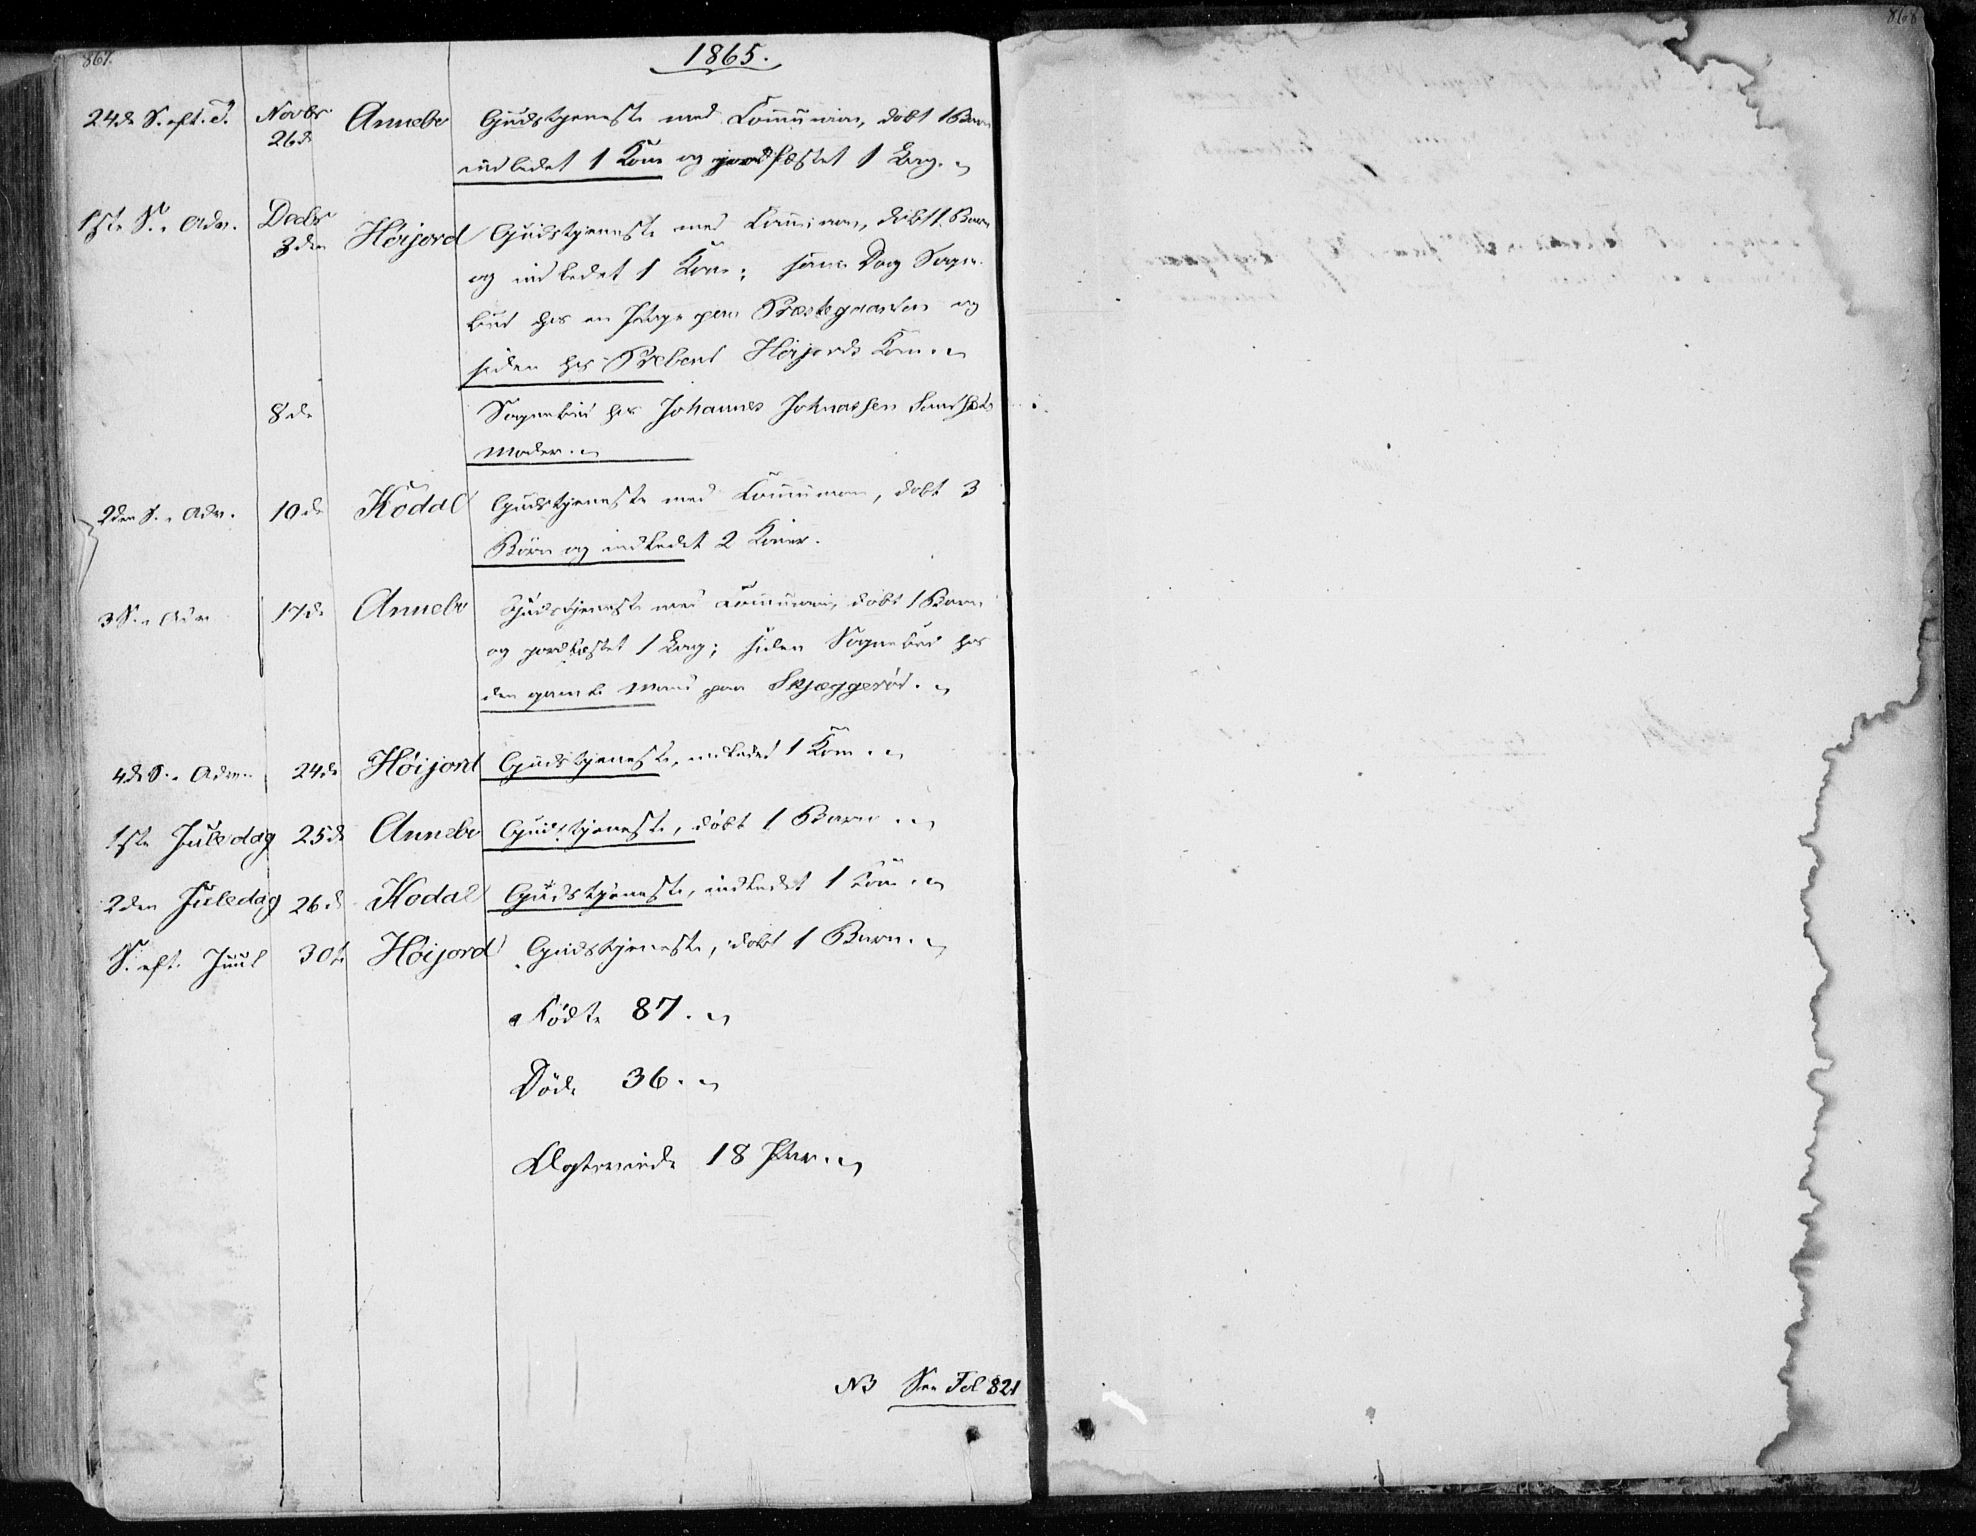 867.
868
1865.
24de S. eft. T. Novbr 26de Annebo Gudstjeneste med Communion, døbt 1 Barn
indledet 1 Kone og jordfæstet 1 Lig.
1ste S. i Adv. Decbr 3den Höijord Gudstjeneste med Communion, døbt 1 Barn
og indledet 1 Kone; samme Dag Sogne-
bud hos en Pige paa Præstegaarden og
siden hos Prebent Höijords Kone.
8de Sognebud hos Johannes Johnassen
Moder.
2den S. i Adv. 10de Kodal Gudstjeneste med Communion, døbt 3
Börn og indledet 2 Koner.
3 S. i Adv. 17de Annebo Gudstjeneste med Communion, døbt 1 Barn
og jordfæstet 1 Lig; siden Sognebud hos
den gamle Mand paa Skjæggeröd.
4de S. i Adv. 24de Höijord Gudstjeneste, indledet 1 Kone.
1ste Juledag 25de Annebo Gudstjeneste, døbt 1 Barn.
2den Juledag 26de Kodal Gudstjeneste, indledet 1 Kone.
S. eft. Juul 30te Höijord Gudstjeneste, døbt 1 Barn.
Födte 87.
Döde 36.
Ægteviede 18 Par.
NB See Fol 821